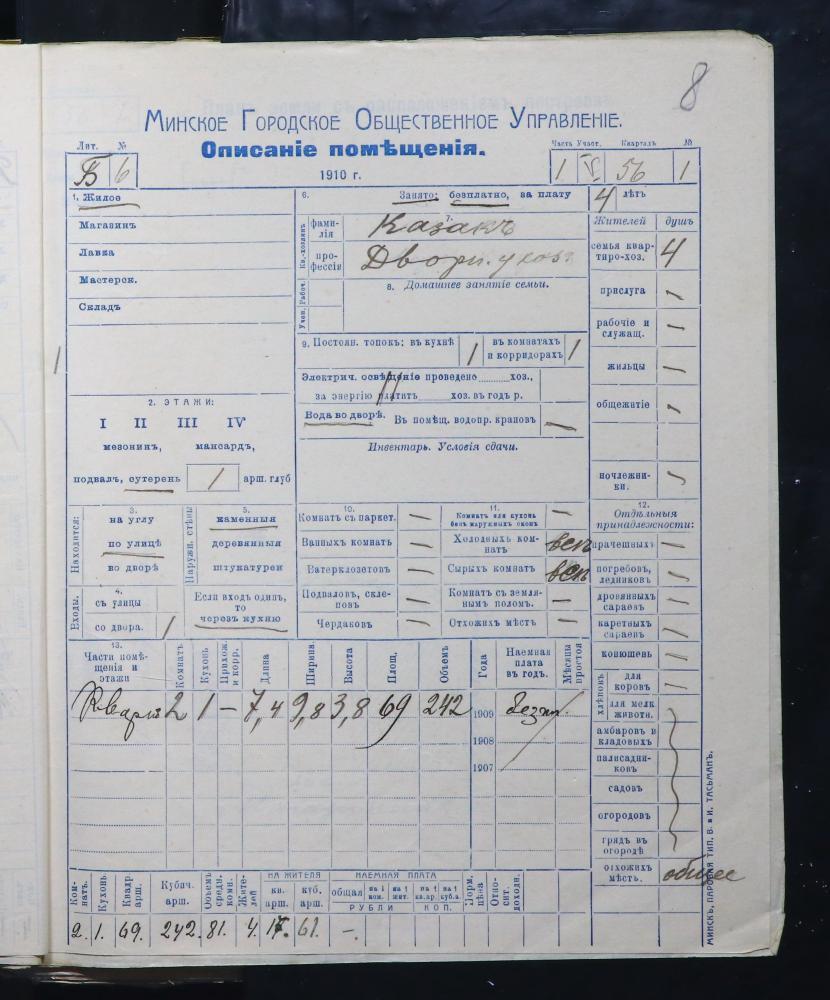 8
Минское Городское Общественное Управленіе.
Описаніе помѣщенія.
1910 г.
Лит. №
Б 6
Часть Участ. Кварталъ №
1 V 56 1
1. Жилое
Магазинъ
Лавка
Мастерск.
Складъ
2. ЭТАЖИ:
I II III IV
мезонинъ, мансардъ,
подвалъ, сутерень 1 арш. глуб
6. Занято: безплатно, за плату 4 лѣтъ
Кв.-хозяинъ
7.
фамилія Казакъ
профессія Дворн. у
Рабоч.
Учен.
8. Домашнее занятіе семьи.
9. Постоян. топокъ: въ кухнѣ 1 въ комнатахъ и корридорахъ 1
Электрич. освѣщеніе проведено хоз.,
за энергію платитъ хоз. въ годъ р.
Вода во дворѣ. Въ помѣщ. водопр. крановъ —
Инвентарь. Условія сдачи.
Жителей душъ
семья квартиро-хоз. 4
прислуга
рабочіе и служащ.
жильцы
общежитіе
ночлежники.
Находится:
3.
на углу
по улицѣ
во дворѣ
Входы:
4.
съ улицы
со двора. 1
Наружн. стѣны
5.
каменныя
деревянныя
штукатурен
Если входъ одинъ, то
черезъ кухню
10.
Комнатъ съ паркет. —
Ванныхъ комнатъ —
Ватерклозетовъ —
Подваловъ, склеповъ —
Чердаковъ —
11.
Комнатъ или кухонь безъ наружныхъ оконъ —
Холодныхъ комнатъ всѣ
Сырыхъ комнатъ всѣ
Комнатъ съ землянымъ поломъ. —
Отхожихъ мѣстъ —
12.
Отдѣльныя принадлежности:
прачешныхъ
погребовъ, ледниковъ
дровянныхъ сараевъ
каретныхъ сараевъ
конюшенъ
хлѣвовъ
для коровъ
для мелк. животн.
амбаровъ и кладовыхъ
палисадниковъ
садовъ
огородовъ
грядъ въ огородѣ
отхожихъ мѣстъ. общее
13.
Части помѣщенія и этажи Комнатъ Кухонь Прихож. и корр. Длина Ширина Высота Площ. Объемъ Года Наемная плата въ годъ. Мѣсяцы простоя
Кварт 2 1 — 7,4 9,8 3,8 69 242 1909 безпл.
1908
1907
НА ЖИТЕЛЯ НАЕМНАЯ ПЛАТА
Комнатъ. Кухонь Квадр. арш. Кубич. арш. Объемъ средн. комн. Жителей кв. арш. куб. арш. общая на 1 ком. на 1 жит. на 1 кв. ар. на 1 куб. а. Норм. цѣна Относит. доходн.
РУБЛИ КОП.
2. 1. 69. 242. 81. 4. 17. 61. —.
МИНСКЪ, ПАРОВАЯ ТИП. Б. и И. ТАСЬМАНЪ.